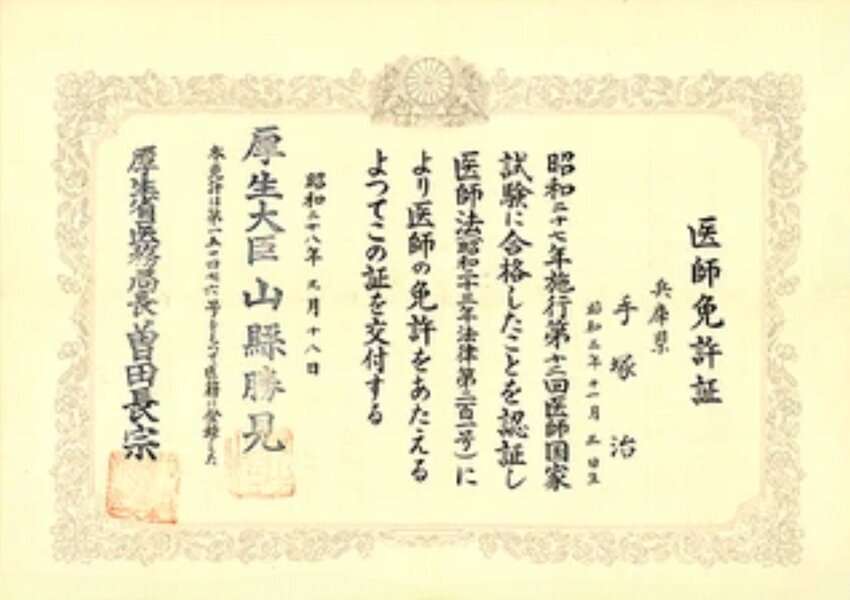 医師免許証
兵庫県
手塚治
昭和三年十一月三日生
昭和二十七年施行第十三回医師国家
試験に合格したことを認証し
医師法(昭和二十三年法律第二百一号)に
より医師の免許をあたえる
よつてこの証を交付する
昭和二十八年九月十八日
厚生大臣 山縣勝見
本免許は第一五
号をもつて医籍に登録した
厚生省医務局長 曽田長宗